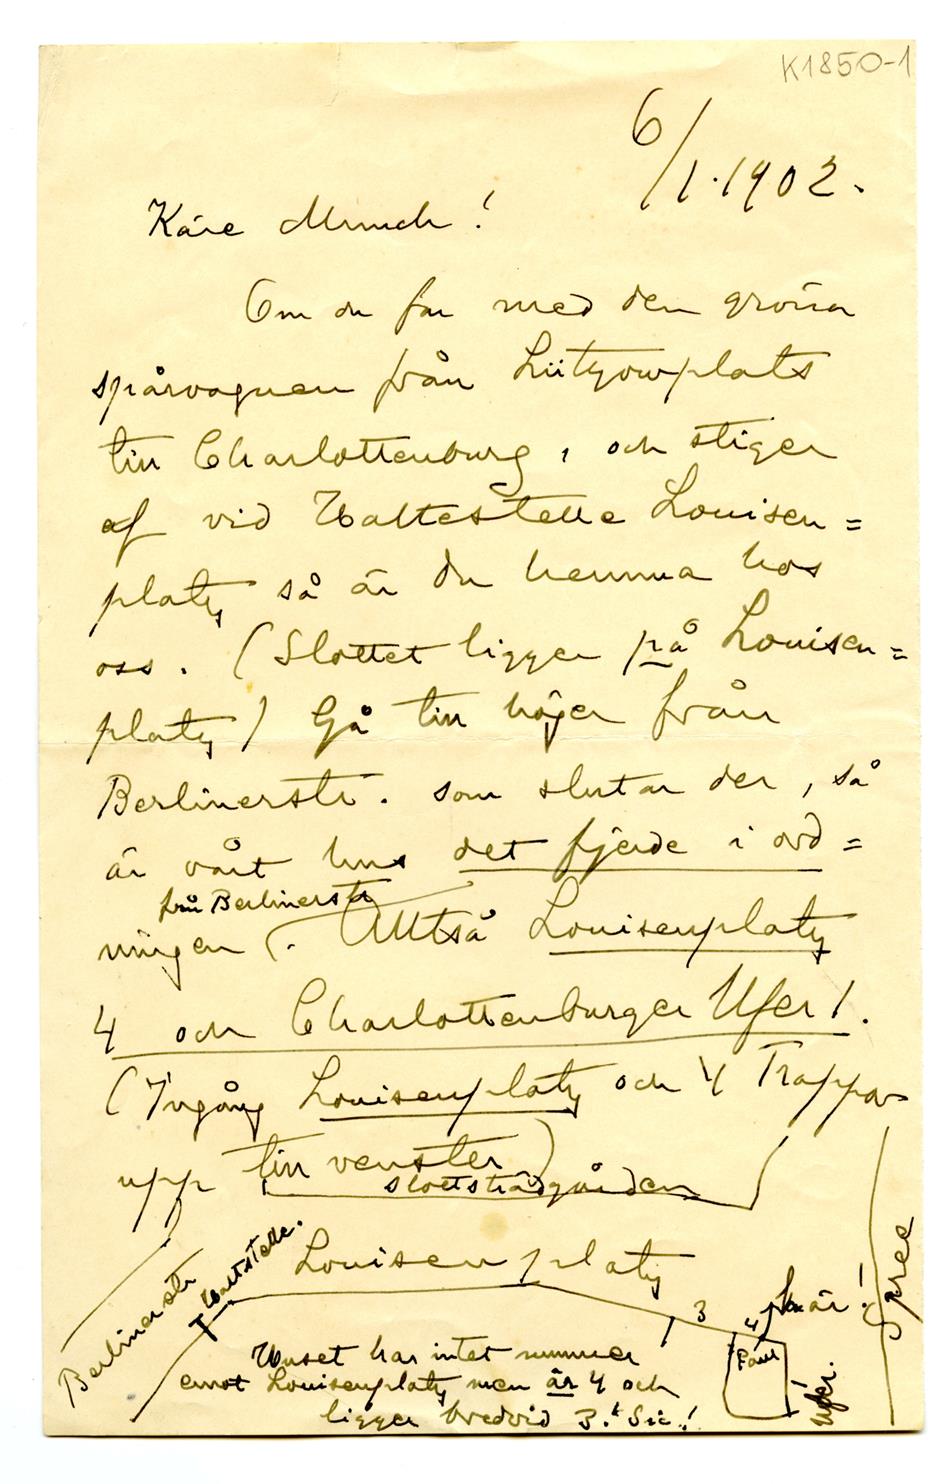 K1850-1
6/1.1902.
Käre Munch!
Om du far med den gröna
spårvagnen från Lützowplats
till Charlottenburg, och stiger
af vid Haltestelle Louisen=
platz så är du hemma hos
oss. (Slottet ligger på Louisen=
platz) Gå till höger från
Berlinerstr. som slutar der, så
är vårt hus det fjerde i ord=
från Berlinerstr
ningen. Alltså Louisenplatz
4 och Charlottenburger Ufer 1.
(Ingång Louisenplatz och 4 Trappor
upp till venster)
slottsträdgården
Louisenplatz
Berlinerstr
Haltstelle.
3
4
här!
Paul
Ufer.
1
Spree
Huset har intet nummer
emot Louisenplatz men är 4 och
ligger bredvid 3. Sic!